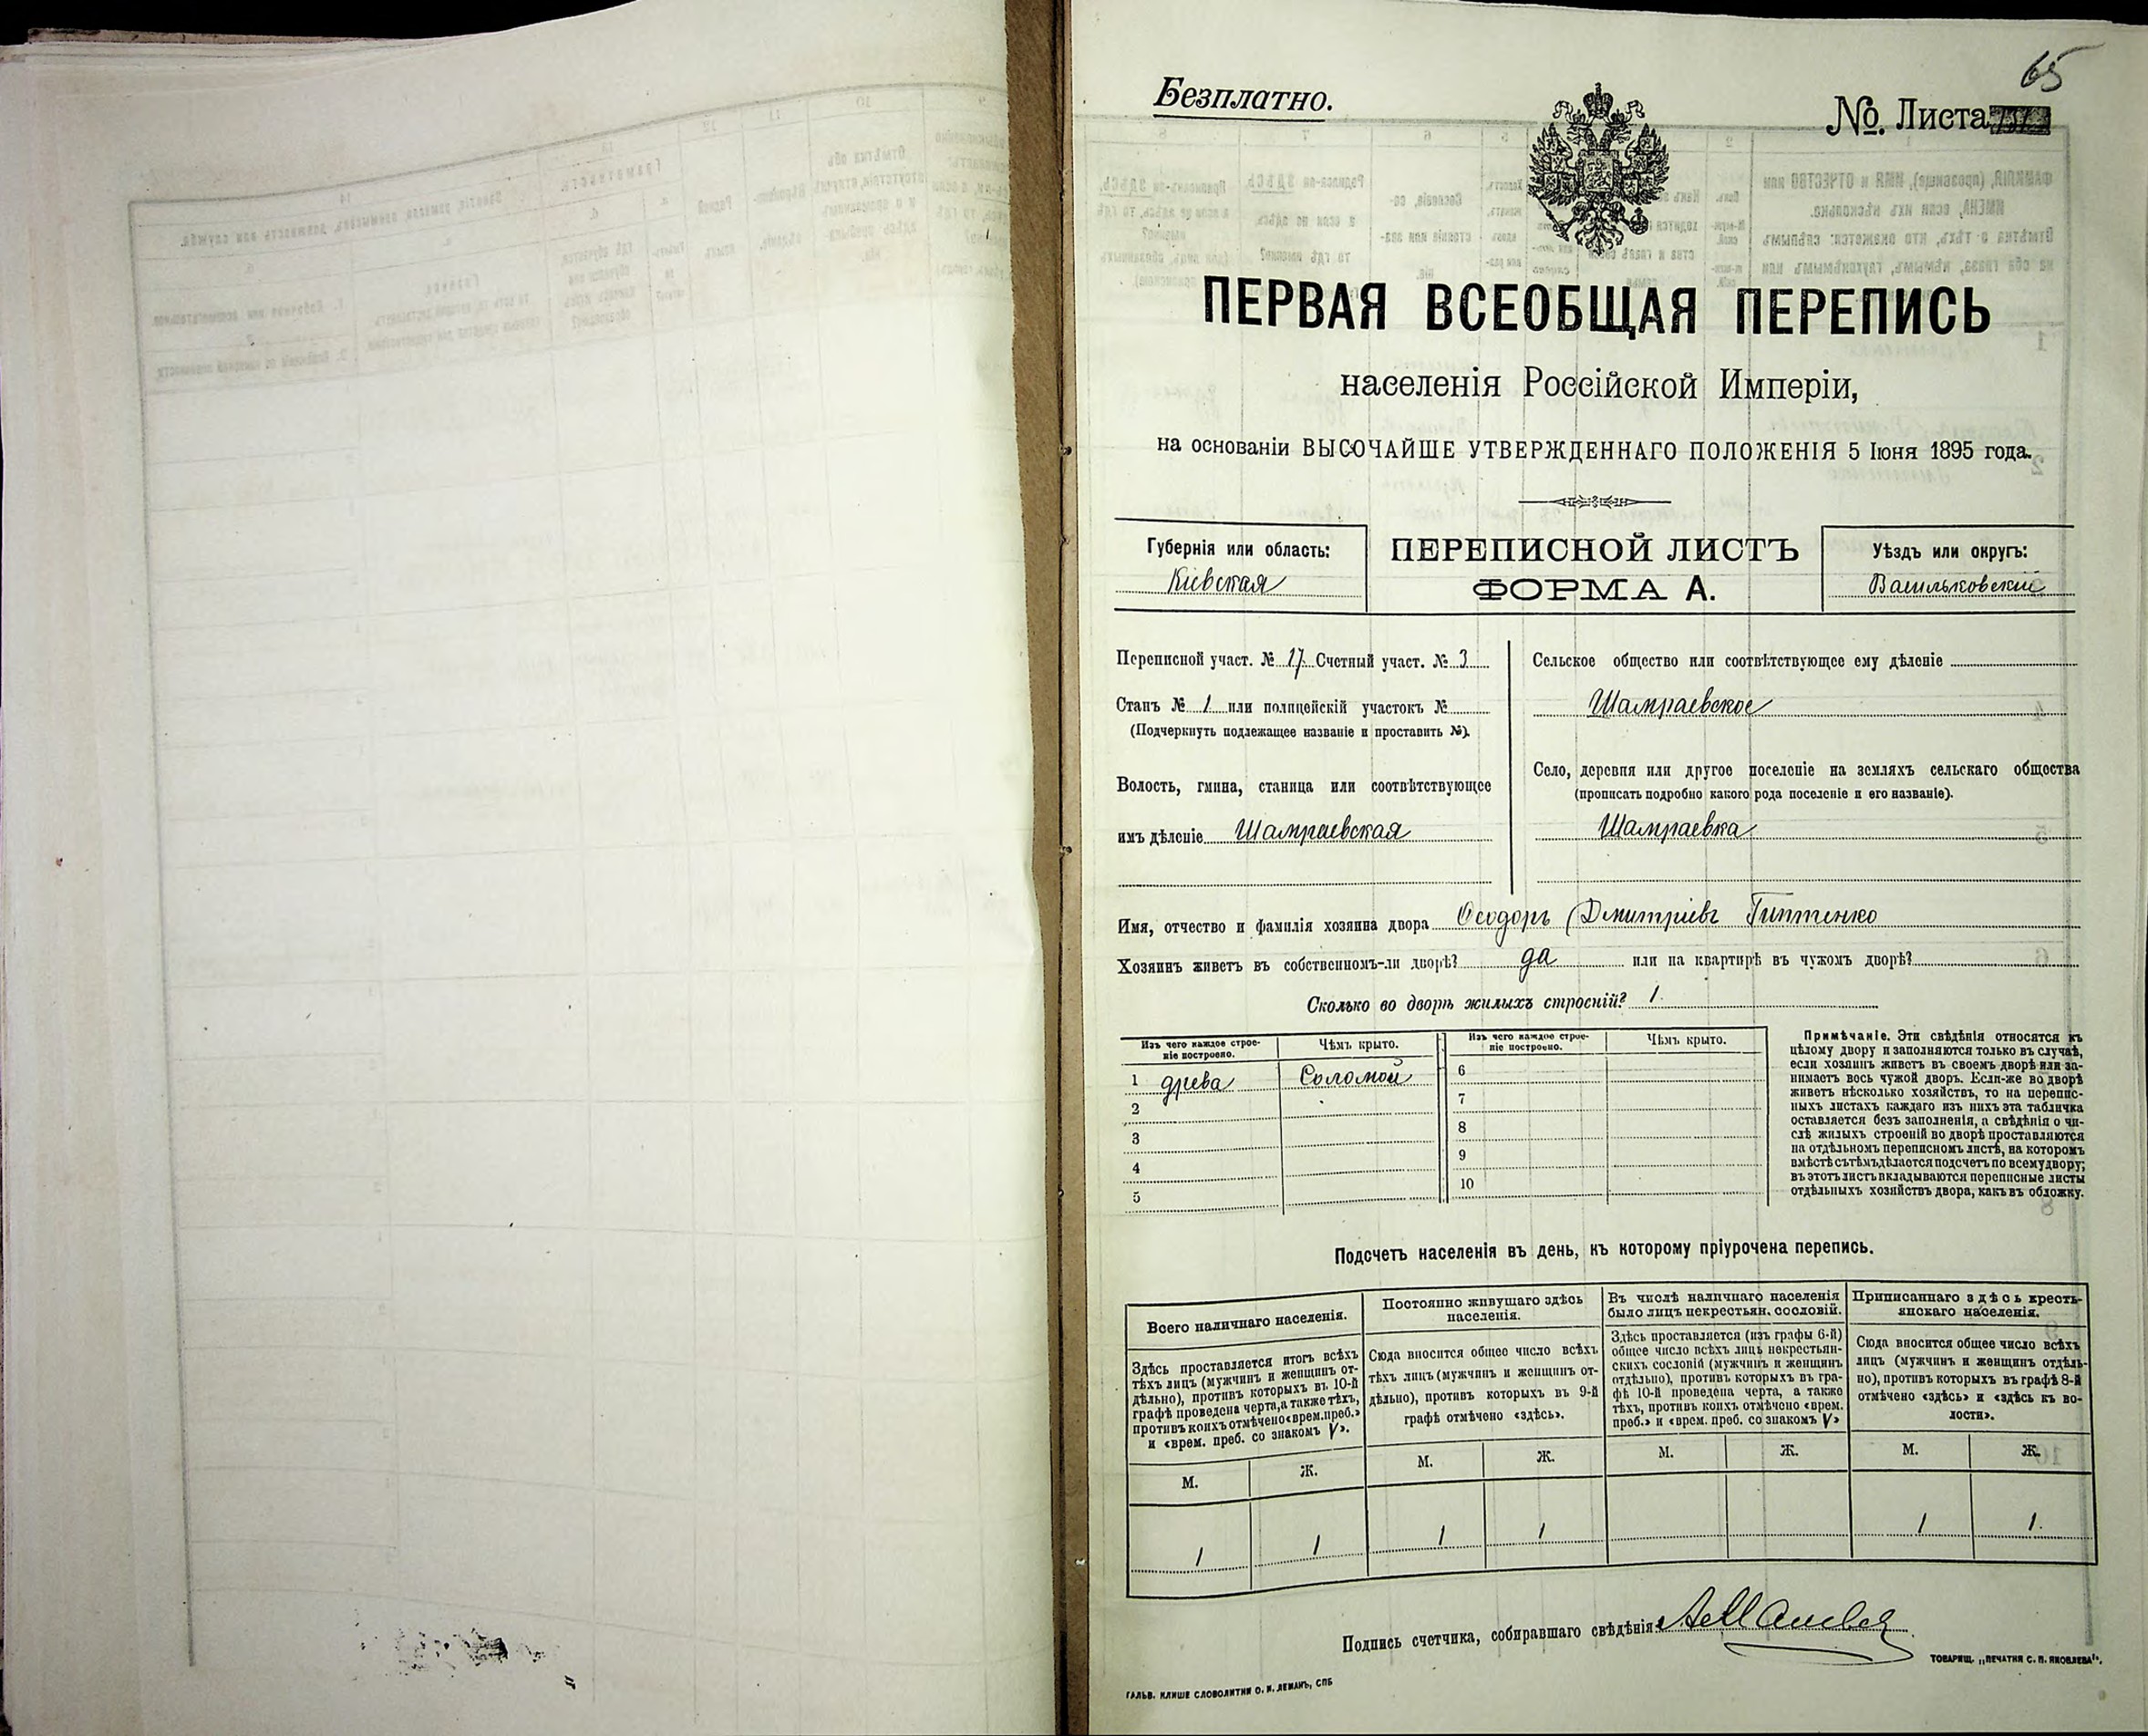 65
Безплатно.
№ Листа
ПЕРВАЯ ВСЕОБЩАЯ ПЕРЕПИСЬ
населенія Россійской Имперіи,
на основаніи ВЫСОЧАЙШЕ УТВЕРЖДЕННАГО ПОЛОЖЕНІЯ 5 Іюня 1895 года.
Губернія или область:
Кіевская
ПЕРЕПИСНОЙ ЛИСТЪ
ФОРМА А.
Уѣздъ или округъ:
Васильковскій
Переписной участ. № 17 Счетный участ. № 3
Станъ № 1 или полицейскій участокъ №
(Подчеркнуть подлежащее названіе и проставить №).
Волость, гмина, станица или соотвѣтствующее
имъ дѣленіе Шамраевская
Сельское общество или соотвѣтствующее ему дѣленіе
Шамраевское
Село, деревня или другое поселеніе на земляхъ сельскаго общества
(прописать подробно какого рода поселеніе и его названіе).
Шамраевка
Имя, отчество и фамилія хозяина двора Ѳеодоръ Дмитріевъ Гиптенко
Хозяинъ живетъ въ собственномъ-ли дворѣ? да или на квартирѣ въ чужомъ дворѣ?
Сколько во дворѣ жилыхъ строеній? 1
Изъ чего каждое строе-
ніе построено.
Чѣмъ крыто.
Изъ чего каждое строе-
ніе построено.
Чѣмъ крыто.
1 древа Соломой 6
2 7
3 8
4 9
5 10
Примѣчаніе. Эти свѣдѣнія относятся къ
цѣлому двору и заполняются только въ случаѣ,
если хозяинъ живетъ въ своемъ дворѣ или за-
нимаетъ весь чужой дворъ. Если-же во дворѣ
живетъ нѣсколько хозяйствъ, то на перепис-
ныхъ листахъ каждаго изъ нихъ эта табличка
оставляется безъ заполненія, а свѣдѣнія о чи-
слѣ жилыхъ строеній во дворѣ проставляются
на отдѣльномъ переписномъ листѣ, на которомъ
вмѣстѣ съ тѣмъ дѣлается подсчетъ по всему двору;
въ этотъ листъ вкладываются переписные листы
отдѣльныхъ хозяйствъ двора, какъ въ обложку.
Подсчетъ населенія въ день, къ которому пріурочена перепись.
Всего наличнаго населенія.
Здѣсь проставляется итогъ всѣхъ
тѣхъ лицъ (мужчинъ и женщинъ от-
дѣльно), противъ которыхъ въ 10-й
графѣ проведена черта, а также тѣхъ,
противъ коихъ отмѣчено «врем. преб.»
и «врем. преб. со знакомъ V».
М. Ж.
1 1
Постоянно живущаго здѣсь
населенія.
Сюда вносится общее число всѣхъ
тѣхъ лицъ (мужчинъ и женщинъ от-
дѣльно), противъ которыхъ въ 9-й
графѣ отмѣчено «здѣсь».
М. Ж.
1 1
Въ числѣ наличнаго населенія
было лицъ некрестьян. сословій.
Здѣсь проставляется (изъ графы 6-й)
общее число всѣхъ лицъ некрестьян-
скихъ сословій (мужчинъ и женщинъ
отдѣльно), противъ которыхъ въ гра-
фѣ 10-й проведена черта, а также
тѣхъ, противъ коихъ отмѣчено «врем.
преб.» и «врем. преб. со знакомъ V»
М. Ж.
Приписаннаго здѣсь кресть-
янскаго населенія.
Сюда вносится общее число всѣхъ
лицъ (мужчинъ и женщинъ отдѣль-
но), противъ которыхъ въ графѣ 8-й
отмѣчено «здѣсь» и «здѣсь къ во-
лости».
М. Ж.
1 1.
Подпись счетчика, собиравшаго свѣдѣнія:
ТОВАРИЩ. „ПЕЧАТНЯ С. П. ЯКОВЛЕВА".
ГАЛЬВ. КЛИШЕ СЛОВОЛИТНИ О. И. ЛЕМАНЪ, СПБ